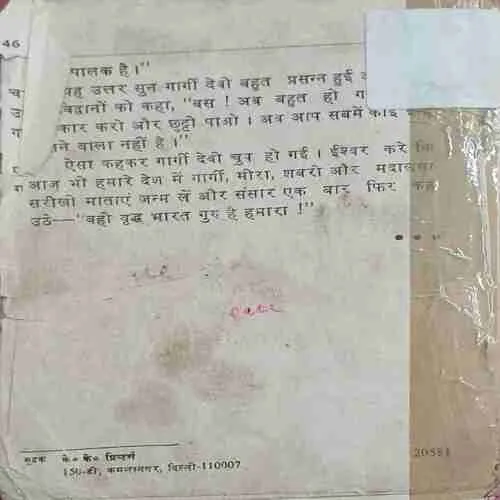 46
पालक है।"
यह उत्तर सुन गार्गी देवी बहुत प्रसन्न हुई
को कहा, "बस ! अब बहुत हो
करो और छुट्टी पाओ । अब आप सबमें कोई
वाला नहीं है।"
ऐसा कहकर गार्गी देवी चुप हो गई । ईश्वर करे कि
आज भी हमारे देश में गार्गी, मीरा, शबरी और मदालसा
सरीखी माताएं जन्म लें और संसार एक बार फिर कह
उठे—"वही वृद्ध भारत गुरु है हमारा !"
● ● ●
मुद्रक के० के० प्रिन्टर्स
150-डी, कमलानगर, दिल्ली-110007
20581